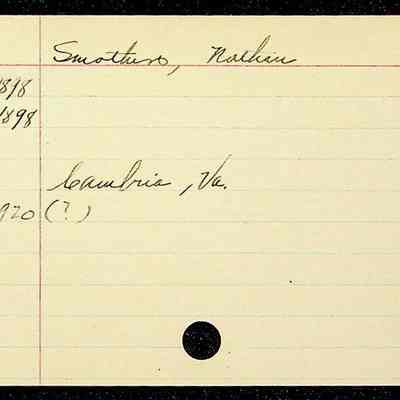 Smothers, Nathan
1898
1898
Cambria, Va.
1920 (?)